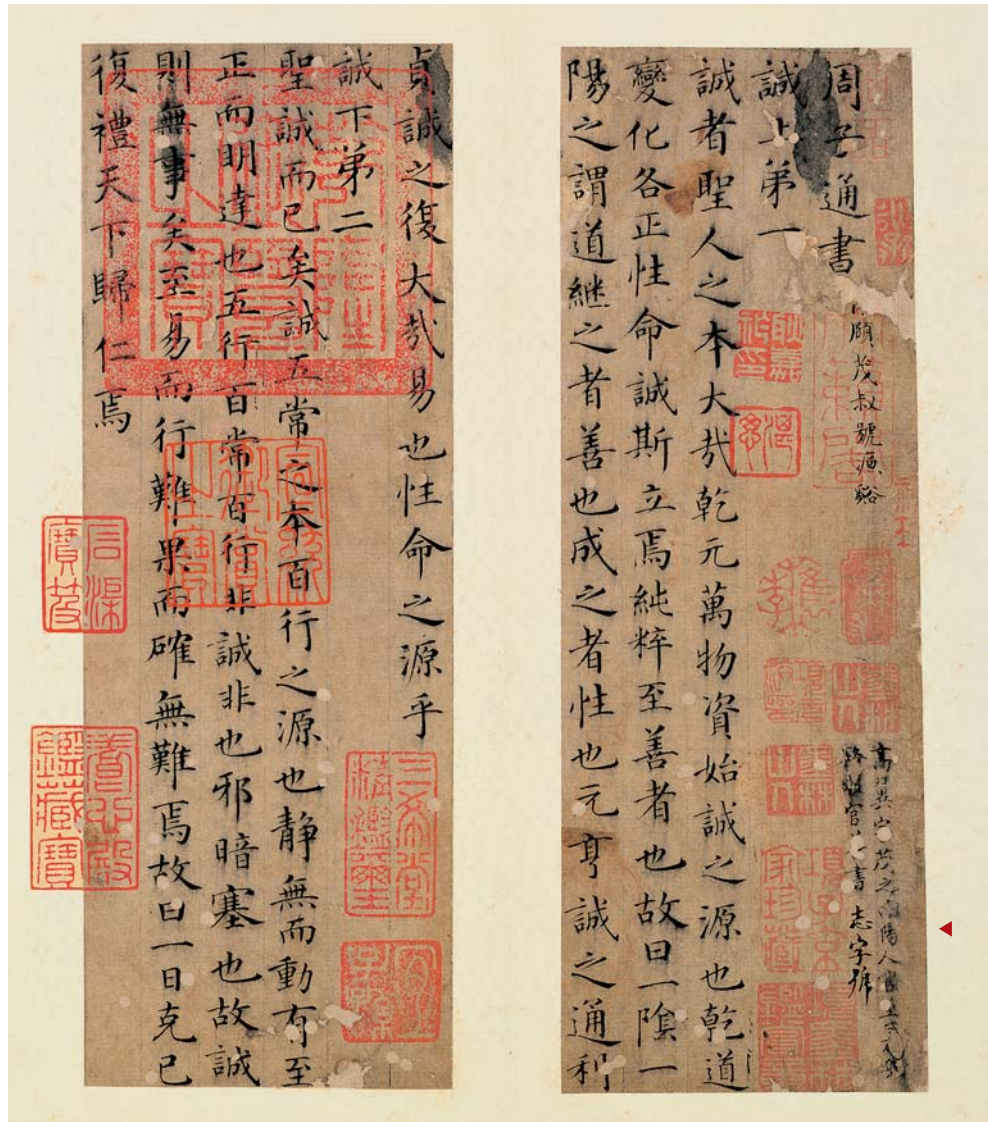 周子通書
頤茂叔號濂谿
誠上第一
誠者聖人之本大㢤乾元萬物資始誠之源也乾道
變化各正性命誠斯立焉純粹至善者也故曰一陰一
陽之謂道継之者善也成之者性也元亨誠之通利
貞誠之復大㢤易也性命之源乎
誠下第二
聖誠而已矣誠五常之本百行之源也静無而動有至
正而明達也五行百常百行非誠非也邪暗塞也故誠
則無事矣至易而行難果而確無難焉故曰一日克己
復禮天下歸仁焉
志字號
三希堂精鑑璽
宜子孫
養心殿鑑藏寶
石渠寶笈